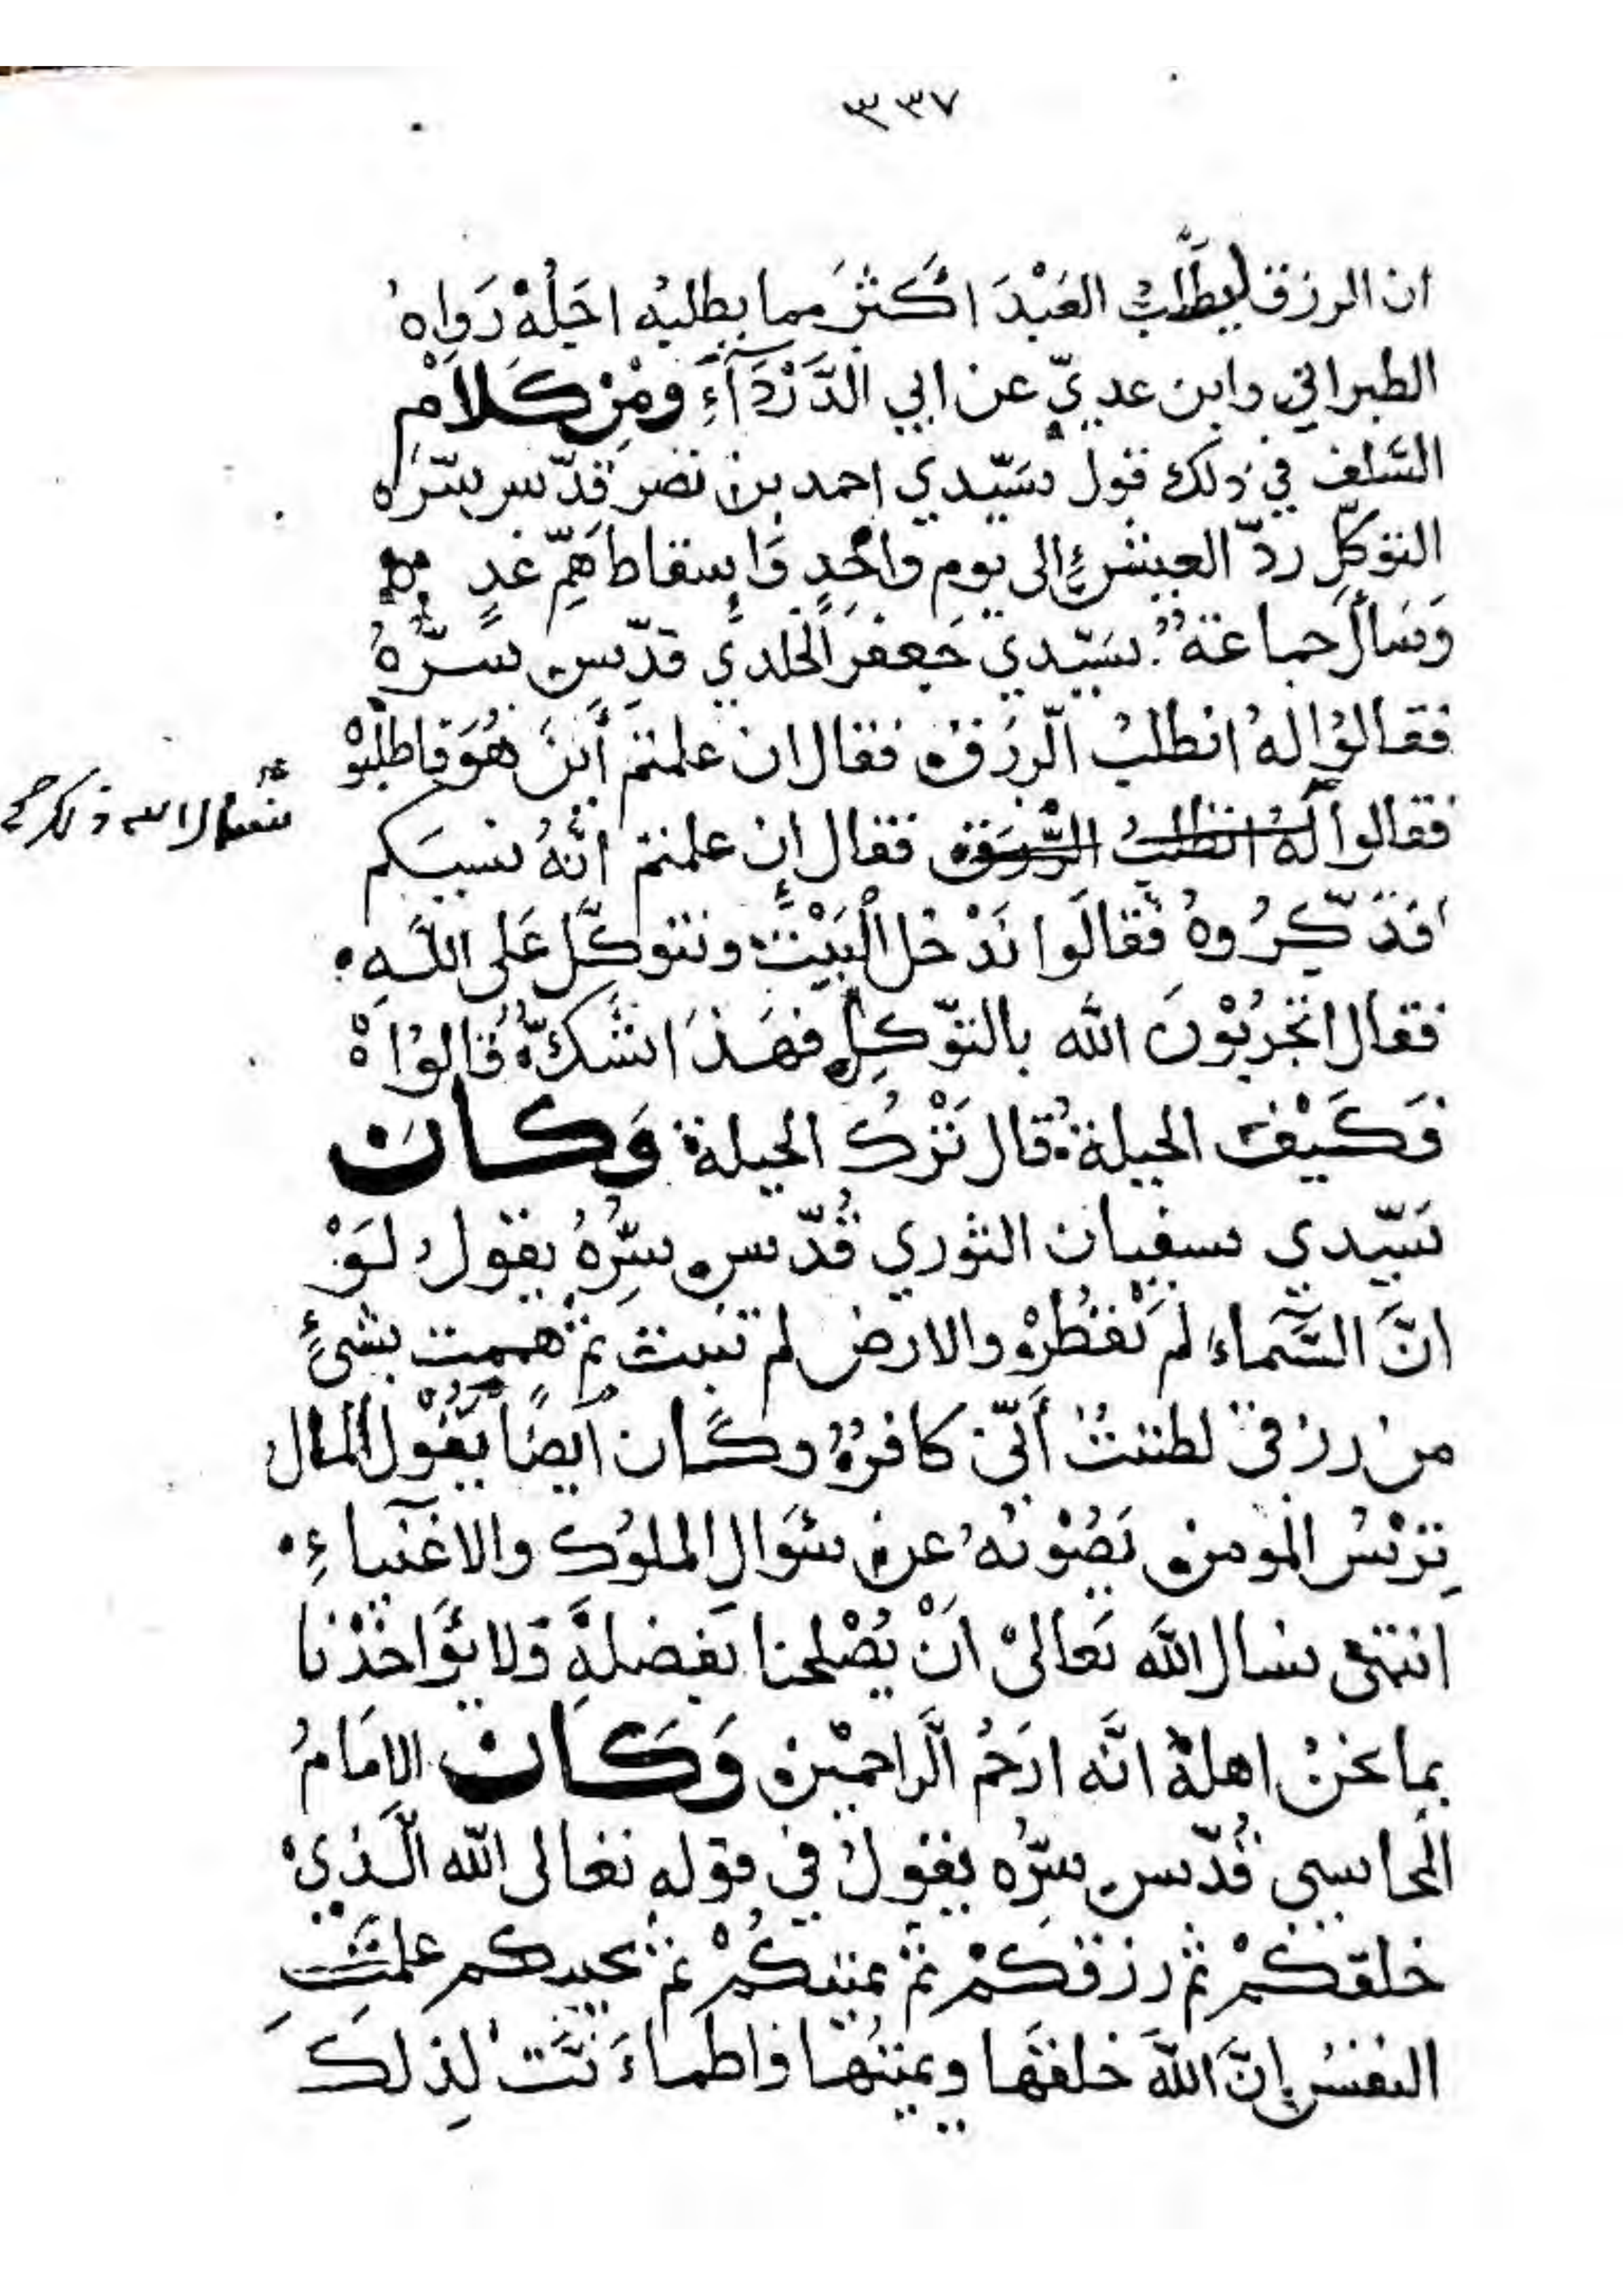 ٣٣٧
ان الرزق ليطلب العَبْدَ اكثر مما يطلبه اجَلُهْ رَواهُ
الطبراني وابن عديّ عن ابي الدَّرْدَآءِ ومِنْ كَلَامِ
السّلف في ذلك قول سَيّدي احمد بن نصر قدّس سّره
التوكّل ردّ العيش إلى يوم واحدٍ وَاِسقاط هَمّ غدٍ
وَسَألَ جماعة سَيّدي جَعفر الخلدي قدّس سرّهُ
فقالوُا لهُ انطلبُ الّرزق فقال ان علمتم أينَ هُوَ فاطلبُوْ
فقالوا لَهُ انطلبُ الرّزق فقال اِن علمتم انّهُ نسيكم
فذكّرُوهُ فَقالَوا نَدْخل الْبَيْتَ ونتوكّل عَلى اللّهِ
فقال اتجربُوْنَ الله بالتوّكل فهَذا شكّ قالوُا
فَكَيْفَ الحيلة قال تَرْك الحيلة وَكَانَ
سَيّدي سفيان الثوري قُدّس سِرُّهُ يقول لَوْ
انَّ السَّمَاءِ لَمْ تَقْطُرْ والارض لم تنبت ثم هممت بشئٍ
من رزقي لظننتُ أَنّي كافرٌ وكَان اَيضًا يَقُوْل المال
تِرْسُ المومن يَصُوْنُه عن سُوَالِ الملوُك والاغنياءِ
انتهى نسال اللهَ تَعالىْ اَنْ يُصْلِحنا بفضلِهِ وَلا يُؤَاخذْنا
بما نحنُ اهلهْ انَّه ارَحمُ الَّراحميْن وَكَانَ الامَامُ
المحاسبي قُدّس سِرُّه يقولُ في قوله تعالى اللّه الَّذيْ
خلقكمْ ثم رزقكمْ ثم يميتكُمْ ثم يحييكم علمَتِ
النفسُ اِنَّ اللّهَ خلقَها ويميتُها فاطمَاءَنَّت لِذلكَ